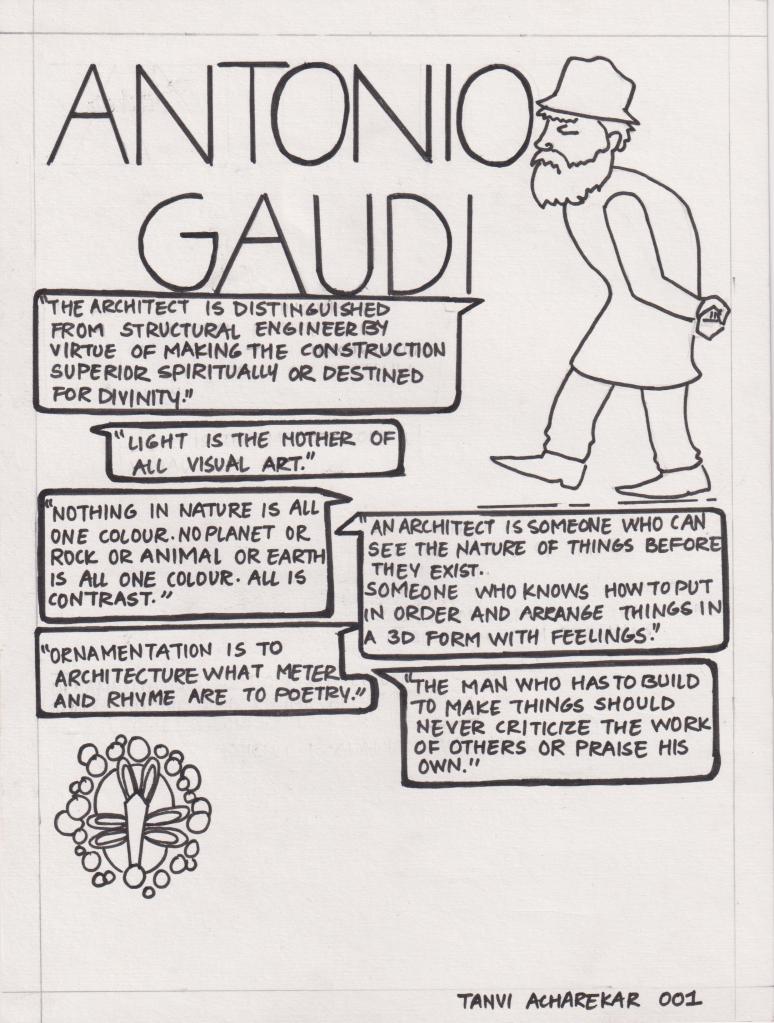 ANTONIO
GAUDI
"THE ARCHITECT IS DISTINGUISHED
FROM STRUCTURAL ENGINEER BY
VIRTUE OF MAKING THE CONSTRUCTION
SUPERIOR SPIRITUALLY OR DESTINED
FOR DIVINITY."
"LIGHT IS THE MOTHER OF
ALL VISUAL ART."
"NOTHING IN NATURE IS ALL
ONE COLOUR. NO PLANET OR
ROCK OR ANIMAL OR EARTH
IS ALL ONE COLOUR. ALL IS
CONTRAST."
"AN ARCHITECT IS SOMEONE WHO CAN
SEE THE NATURE OF THINGS BEFORE
THEY EXIST.
SOMEONE WHO KNOWS HOW TO PUT
IN ORDER AND ARRANGE THINGS IN
A 3D FORM WITH FEELINGS."
"ORNAMENTATION IS TO
ARCHITECTURE WHAT METER
AND RHYME ARE TO POETRY."
"THE MAN WHO HAS TO BUILD
TO MAKE THINGS SHOULD
NEVER CRITICIZE THE WORK
OF OTHERS OR PRAISE HIS
OWN."
TANVI ACHAREKAR 001